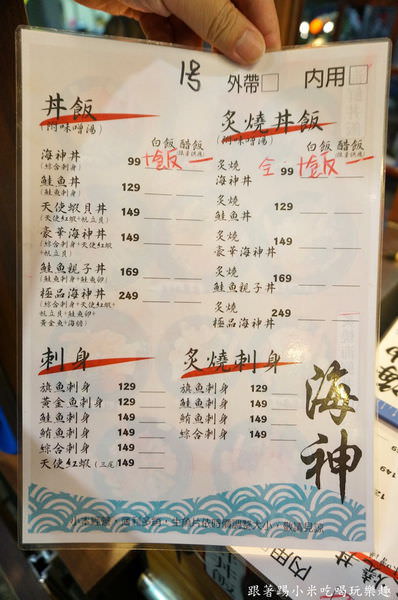 1号 外帶□ 內用□
丼飯
(附味噌湯)
白飯 醋飯
(限量供應)
海神丼 99 加飯 一
(綜合刺身)
鮭魚丼 129
(鮭魚刺身)
天使蝦貝丼 149
(天使紅蝦+帆立貝)
豪華海神丼 149
(綜合刺身+天使紅蝦
+帆立貝)
鮭魚親子丼 169
(鮭魚刺身+鮭魚卵)
極品海神丼 249
(綜合刺身+天使紅蝦
+帆立貝+鮭魚卵+
黃金魚+海膽)
炙燒丼飯
(附味噌湯)
白飯 醋飯
(限量供應)
炙燒
海神丼 99 加飯 一
炙燒
鮭魚丼 129
炙燒
豪華海神丼 149
炙燒
鮭魚親子丼 169
炙燒
極品海神丼 249
刺身
旗魚刺身 129
黃金魚刺身 129
鮭魚刺身 149
鮪魚刺身 149
綜合刺身 149
天使紅蝦(三尾) 149
炙燒刺身
旗魚刺身 129
鮭魚刺身 149
鮪魚刺身 149
綜合刺身 149
海神
內用
跟著踢小米吃喝玩樂趣